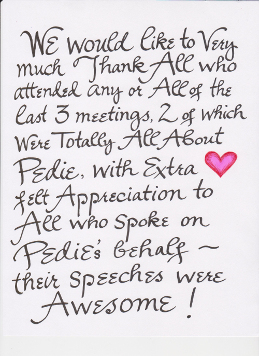 We would like to Very
much Thank All who
attended any or All of the
last 3 meetings, 2 of which
were Totally All About
Pedie, with Extra
felt Appreciation to
All who spoke on
Pedie's behalf ~
their speeches were
Awesome!